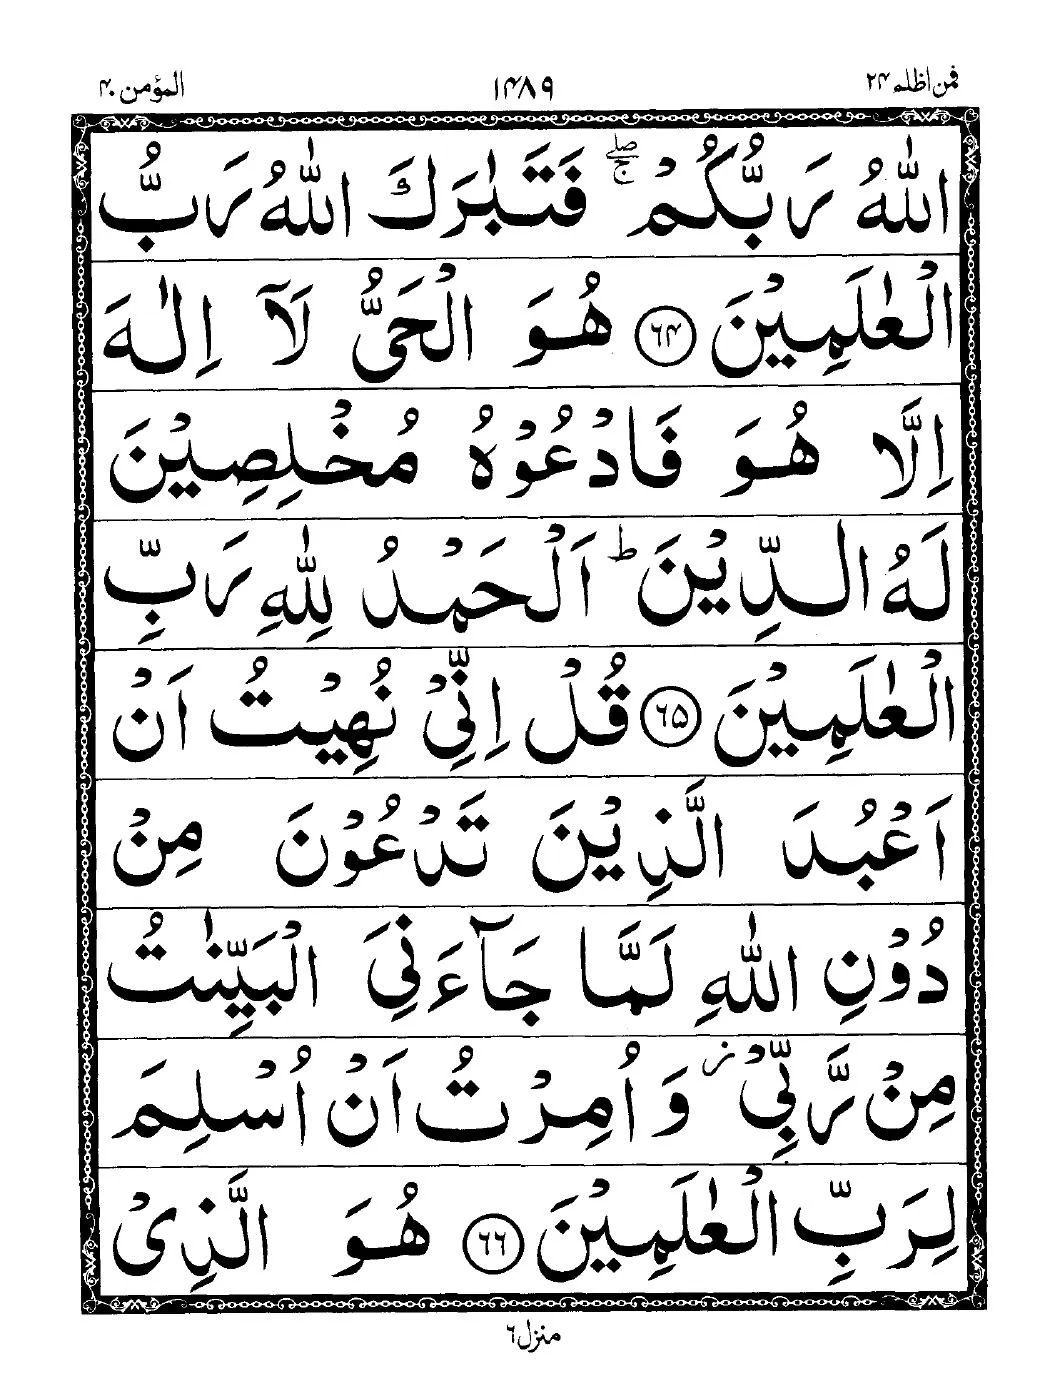 المؤمن ۴۰ ۱۴۸۹ فمن اظلم ۲۴
اللّٰهُ رَبُّكُمْ ۖۚ فَتَبٰرَكَ اللّٰهُ رَبُّ
الْعٰلَمِيْنَ ﴿۶۴﴾ هُوَ الْحَىُّ لَآ اِلٰهَ
اِلَّا هُوَ فَادْعُوْهُ مُخْلِصِيْنَ
لَهُ الدِّيْنَ ؕ اَلْحَمْدُ لِلّٰهِ رَبِّ
الْعٰلَمِيْنَ ﴿۶۵﴾ قُلْ اِنِّىْ نُهِيْتُ اَنْ
اَعْبُدَ الَّذِيْنَ تَدْعُوْنَ مِنْ
دُوْنِ اللّٰهِ لَمَّا جَآءَنِىَ الْبَيِّنٰتُ
مِنْ رَّبِّىْ ز وَ اُمِرْتُ اَنْ اُسْلِمَ
لِرَبِّ الْعٰلَمِيْنَ ﴿۶۶﴾ هُوَ الَّذِىْ
منزل ۶